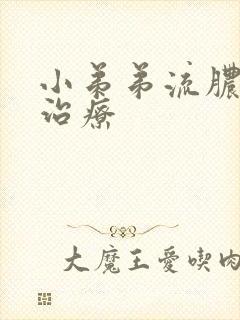 小弟弟流膿
治療
大魔王愛喫肉